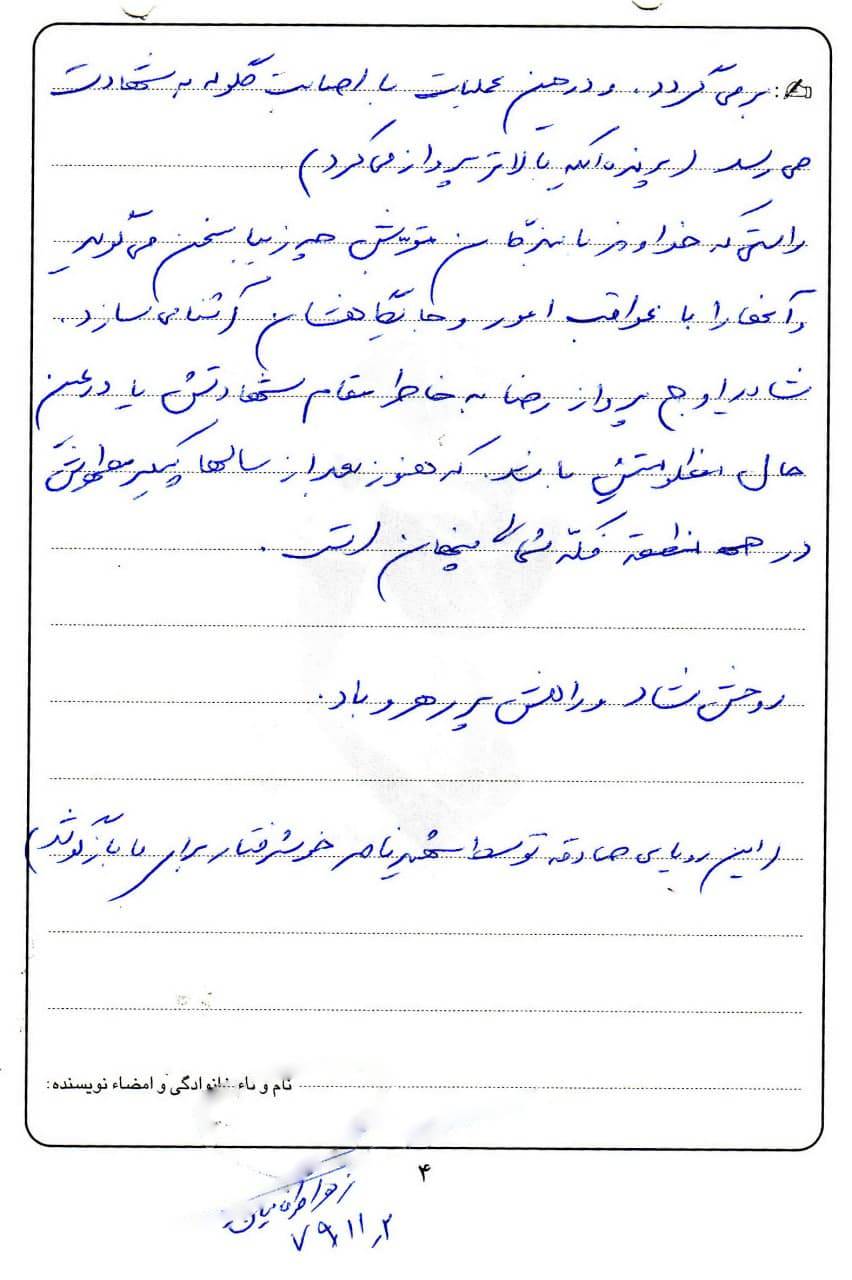 بر می‌گردد. و در حین عملیات با اصابت گلوله به شهادت
می رسد (پرنده‌ایکه بالاتر پرواز می کرد)
راستی که خداوند با بندگان مقربش چه زیبا سخن می‌گوید
و آنها را با عواقب امور و جایگاهشان آشنا می سازد.
شاید اوج پرواز رضا به خاطر مقام شهادتش یا در عین
حال مظلومیتش باشد. که هنوز بعد از سالها پیکر مطهرش
در منطقه فکّه شمالی پنهان است.
روحش شاد و راهش پر رهرو باد.
(این رویای صادقه توسط شهید ناصر خوشرفتار برای ما بازگو شد)
نام و نام خانوادگی و امضاء نویسنده:
۴
زهرا
۷۹,۱۱,۲